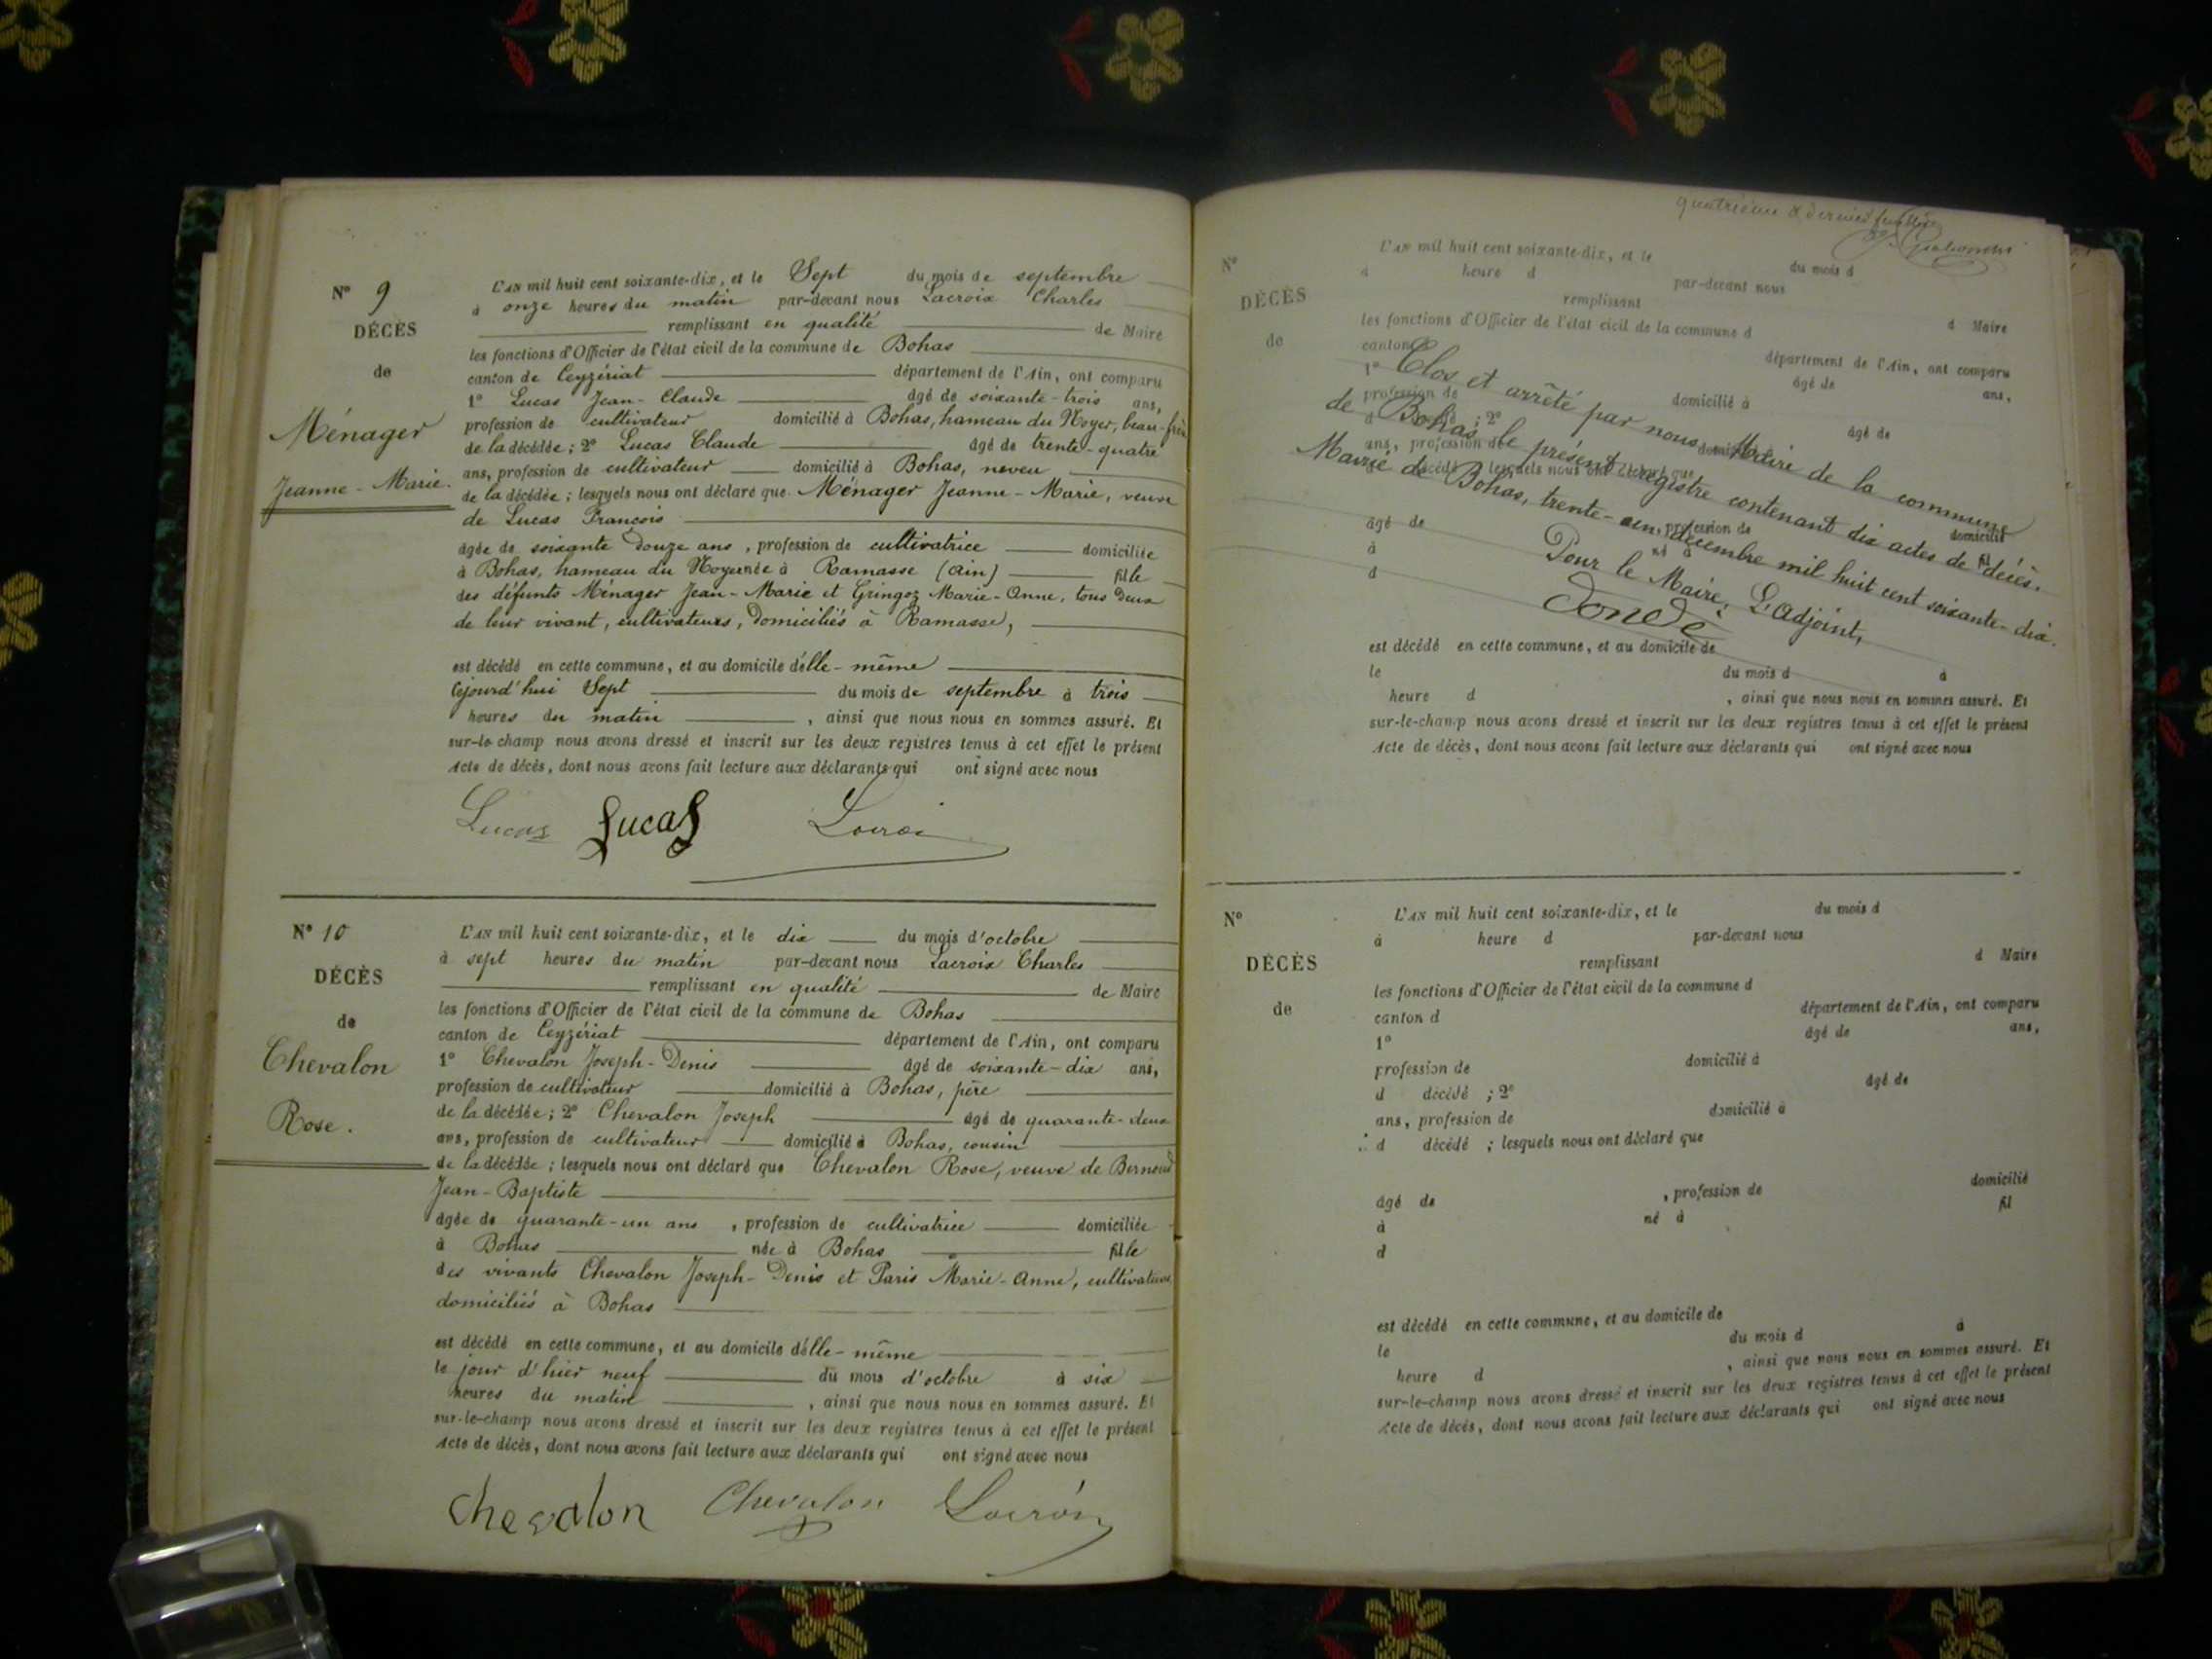 N° 9
DÉCÈS
de
Ménager
Jeanne-Marie.
L'AN mil huit cent soixante-dix, et le Sept du mois de septembre
à onze heures du matin par-devant nous Lacroix Charles
remplissant en qualité de Maire
les fonctions d'Officier de l'état civil de la commune de Bohas
canton de Ceyzériat département de l'Ain, ont comparu
1° Lucas Jean-Claude âgé de soixante-trois ans,
profession de cultivateur domicilié à Bohas, hameau du Noyer, beau-frère
de la décédée ; 2° Lucas Claude âgé de trente-quatre
ans, profession de cultivateur domicilié à Bohas, neveu
de la décédée ; lesquels nous ont déclaré que Ménager Jeanne-Marie, veuve
de Lucas François
âgée de soixante douze ans, profession de cultivatrice domiciliée
à Bohas, hameau du Noyer née à Ramasse (Ain) fille
des défunts Ménager Jean-Marie et Gringoz Marie-Anne, tous deux
de leur vivant, cultivateurs, domiciliés à Ramasse,
est décédé en cette commune, et au domicile d'elle-même
cejourd'hui Sept du mois de septembre à trois
heures du matin, ainsi que nous nous en sommes assuré. Et
sur-le-champ nous avons dressé et inscrit sur les deux registres tenus à cet effet le présent
Acte de décès, dont nous avons fait lecture aux déclarants qui ont signé avec nous
Lucas Lucas Lacroix
N° 10
DÉCÈS
de
Chevalon
Rose.
L'AN mil huit cent soixante-dix, et le dix du mois d'octobre
à sept heures du matin par-devant nous Lacroix Charles
remplissant en qualité de Maire
les fonctions d'Officier de l'état civil de la commune de Bohas
canton de Ceyzériat département de l'Ain, ont comparu
1° Chevalon Joseph-Denis âgé de soixante-dix ans,
profession de cultivateur domicilié à Bohas, père
de la décédée ; 2° Chevalon Joseph âgé de quarante-deux
ans, profession de cultivateur domicilié à Bohas, cousin
de la décédée ; lesquels nous ont déclaré que Chevalon Rose, veuve de
Jean-Baptiste
âgée de quarante-un ans, profession de cultivatrice domiciliée
à Bohas née à Bohas fille
des vivants Chevalon Joseph-Denis et Paris Marie-Anne, cultivateurs
domiciliés à Bohas
est décédé en cette commune, et au domicile d'elle-même
le jour d'hier neuf du mois d'octobre à six
heures du matin, ainsi que nous nous en sommes assuré. Et
sur-le-champ nous avons dressé et inscrit sur les deux registres tenus à cet effet le présent
Acte de décès, dont nous avons fait lecture aux déclarants qui ont signé avec nous
chevalon Chevalon Lacroix
quatrième & dernier feuillet
N°
DÉCÈS
de
L'AN mil huit cent soixante-dix, et le du mois d
à heure d par-devant nous
remplissant d Maire
les fonctions d'Officier de l'état civil de la commune d
canton d département de l'Ain, ont comparu
1° âgé de ans,
profession de domicilié à
d décédé ; 2° âgé de
ans, profession de domicilié à
d décédé ; lesquels nous ont déclaré que
Clos et arrêté par nous, Maire de la commune
de Bohas, le présent registre contenant dix actes de décès.
Mairie de Bohas, trente-un décembre mil huit cent soixante-dix.
Pour le Maire, L'Adjoint,
âgé de , profession de domicilié
à né à fil
d
est décédé en cette commune, et au domicile de
le du mois d à
heure d , ainsi que nous nous en sommes assuré. Et
sur-le-champ nous avons dressé et inscrit sur les deux registres tenus à cet effet le présent
Acte de décès, dont nous avons fait lecture aux déclarants qui ont signé avec nous
N°
DÉCÈS
de
L'AN mil huit cent soixante-dix, et le du mois d
à heure d par-devant nous
remplissant d Maire
les fonctions d'Officier de l'état civil de la commune d
canton d département de l'Ain, ont comparu
1° âgé de ans,
profession de domicilié à
d décédé ; 2° âgé de
ans, profession de domicilié à
d décédé ; lesquels nous ont déclaré que
âgé de , profession de domicilié
à né à fil
d
est décédé en cette commune, et au domicile de
le du mois d à
heure d , ainsi que nous nous en sommes assuré. Et
sur-le-champ nous avons dressé et inscrit sur les deux registres tenus à cet effet le présent
Acte de décès, dont nous avons fait lecture aux déclarants qui ont signé avec nous